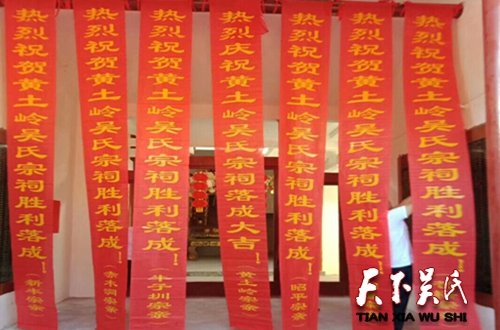 热烈祝贺黄土岭吴氏宗祠胜利落成！
（新木宗亲）
热烈祝贺黄土岭吴氏宗祠胜利落成！
（赤木洞宗亲）
热烈祝贺黄土岭吴氏宗祠胜利落成！
（斗子圳宗亲）
热烈庆祝黄土岭吴氏宗祠落成大吉
（黄土岭宗亲）
热烈祝贺黄土岭吴氏宗祠胜利落成！
（昭平宗亲）
热烈祝贺黄土岭吴氏宗祠胜利落成！
热烈祝贺黄土岭吴氏宗祠胜利落成！
天下吴氏
TIAN XIA WU SHI